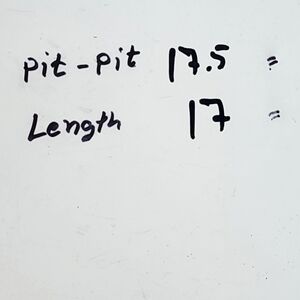 pit-pit 17.5 =
Length 17 =